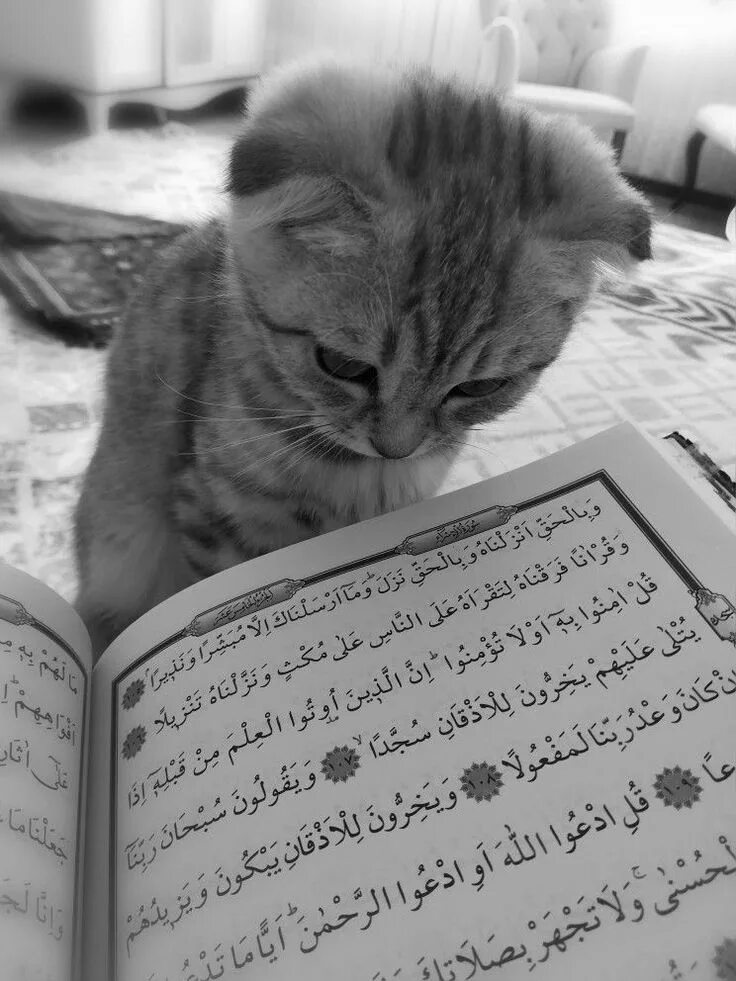 سُورَةُ الْاِسْرَاءِ
وَبِالْحَقِّ اَنْزَلْنَاهُ وَبِالْحَقِّ نَزَلَۜ وَمَٓا اَرْسَلْنَاكَ اِلَّا مُبَشِّرًا وَنَذ۪يرًاۢ ﴿١٠٥﴾
وَقُرْاٰنًا فَرَقْنَاهُ لِتَقْرَاَهُ عَلَى النَّاسِ عَلٰى مُكْثٍ وَنَزَّلْنَاهُ تَنْز۪يلًا ﴿١٠٦﴾
قُلْ اٰمِنُوا بِه۪ٓ اَوْ لَا تُؤْمِنُواۜ اِنَّ الَّذ۪ينَ اُو۫تُوا الْعِلْمَ مِنْ قَبْلِه۪ٓ اِذَا
يُتْلٰى عَلَيْهِمْ يَخِرُّونَ لِلْاَذْقَانِ سُجَّدًاۙ ﴿١٠٧﴾ وَيَقُولُونَ سُبْحَانَ رَبِّنَٓا
اِنْ كَانَ وَعْدُ رَبِّنَا لَمَفْعُولًا ﴿١٠٨﴾ وَيَخِرُّونَ لِلْاَذْقَانِ يَبْكُونَ وَيَز۪يدُهُمْ
عًا ﴿١٠٩﴾ قُلِ ادْعُوا اللّٰهَ اَوِ ادْعُوا الرَّحْمٰنَۜ اَيًّا مَا تَدْعُو
الْحُسْنٰىۚ وَلَا تَجْهَرْ بِصَلَاتِكَ
مَا لَهُمْ بِه۪
اَفْوَاهِهِمْۜ
عَلٰٓى اٰثَارِ
جَعَلْنَا مَا
وَاِنَّا